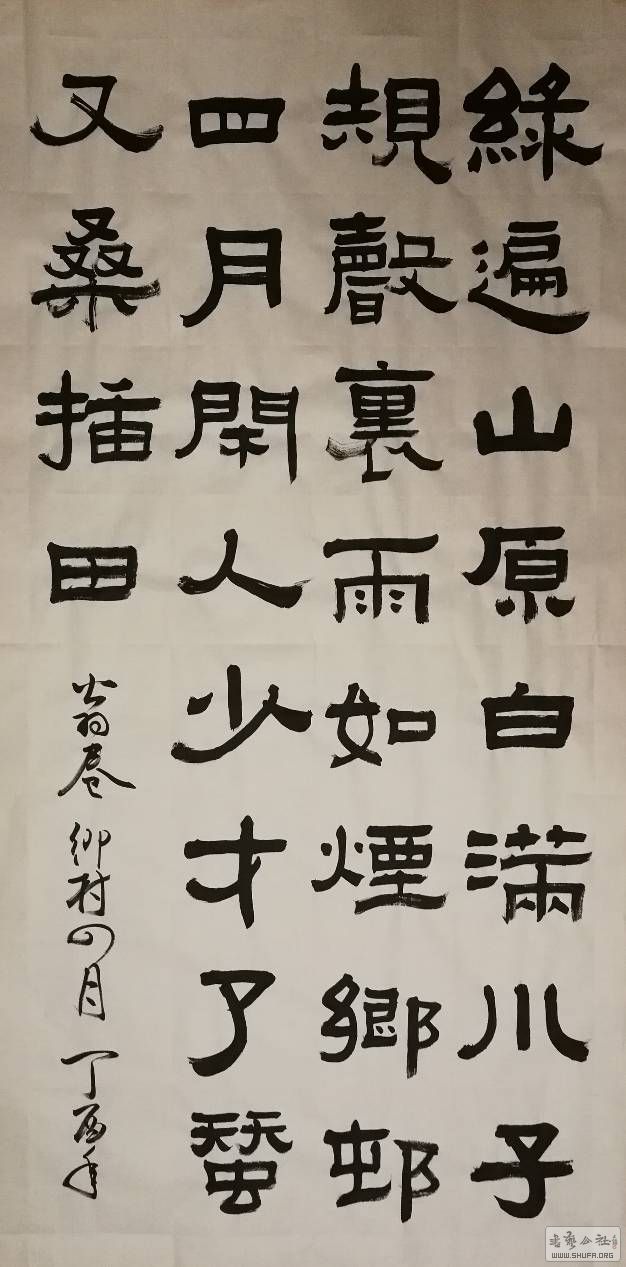 綠遍山原白滿川子
規聲裏雨如煙鄉邨
四月閑人少才了蠶
又桑插田
翁卷 鄉村四月 丁酉年
书艺公社
WWW.SHUFA.ORG